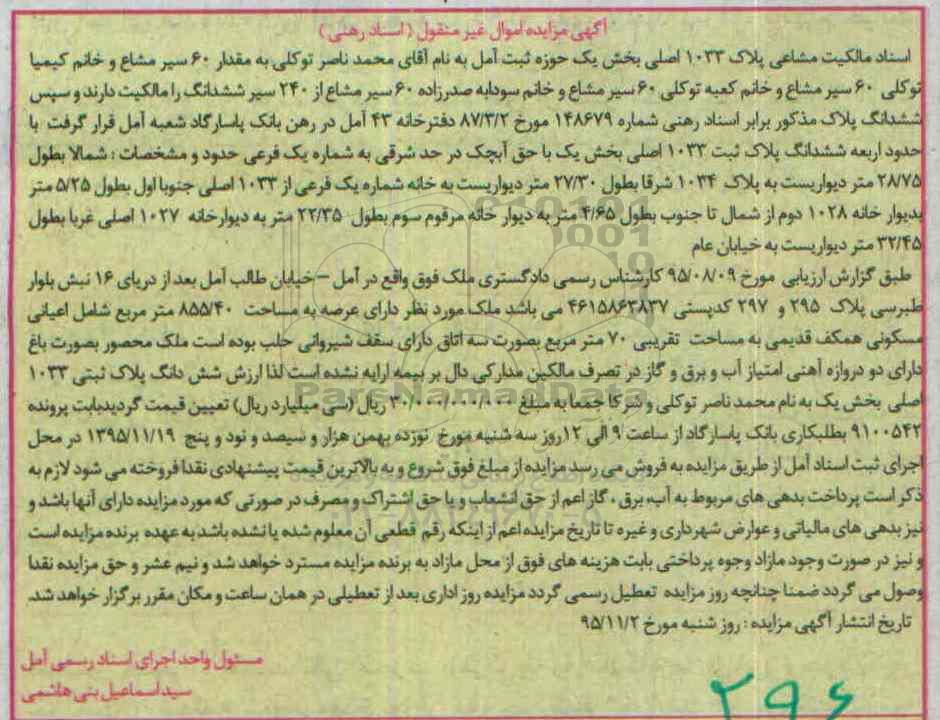 آگهی مزایده اموال غیر منقول (اسناد رهنی)
اسناد مالکیت مشاعی پلاک ۱۰۳۳ اصلی بخش یک حوزه ثبت آمل به نام آقای محمد ناصر توکلی به مقدار ۶۰ سیر مشاع و خانم کیمیا
توکلی ۶۰ سیر مشاع و خانم کعبه توکلی ۶۰ سیر مشاع و خانم سودابه صدرزاده ۶۰ سیر مشاع از ۲۴۰ سیر ششدانگ را مالکیت دارند و سپس
ششدانگ پلاک مذکور برابر اسناد رهنی شماره ۱۴۸۶۷۹ مورخ ۸۷/۳/۲ دفترخانه ۴۳ آمل در رهن بانک پاسارگاد شعبه آمل قرار گرفت با
حدود اربعه ششدانگ پلاک ثبت ۱۰۳۳ اصلی بخش یک با حق آبچک در حد شرقی به شماره یک فرعی حدود و مشخصات : شمالا بطول
۲۸/۷۵ متر دیواریست به پلاک ۱۰۳۴ شرقا بطول ۲۷/۳۰ متر دیواریست به خانه شماره یک فرعی از ۱۰۳۳ اصلی جنوبا اول بطول ۵/۲۵ متر
بدیوار خانه ۱۰۲۸ دوم از شمال تا جنوب بطول ۴/۶۵ متر به دیوار خانه مرقوم سوم بطول ۲۲/۳۵ متر به دیوارخانه ۱۰۲۷ اصلی غربا بطول
۳۲/۴۵ متر دیواریست به خیابان عام
طبق گزارش ارزیابی مورخ ۹۵/۰۸/۰۹ کارشناس رسمی دادگستری ملک فوق واقع در آمل – خیابان طالب آمل بعد از دریای ۱۶ نبش بلوار
طبرسی پلاک ۲۹۵ و ۲۹۷ کدپستی ۴۶۱۵۸۶۳۸۳۷ می باشد ملک مورد نظر دارای عرصه به مساحت ۸۵۵/۴۰ متر مربع شامل اعیانی
مسکونی همکف قدیمی به مساحت تقریبی ۷۰ متر مربع بصورت سه اتاق دارای سقف شیروانی حلب بوده است ملک محصور بصورت باغ
دارای دو دروازه آهنی امتیاز آب و برق و گاز در تصرف مالکین مدارکی دال بر بیمه ارایه نشده است لذا ارزش شش دانگ پلاک ثبتی ۱۰۳۳
اصلی بخش یک به نام محمد ناصر توکلی و شرکا جمعا به مبلغ ۳۰/۰۰۰/۰۰۰/۰۰۰ ریال (سی میلیارد ریال) تعیین قیمت گردیدبابت پرونده
۹۱۰۰۵۴۲ بطلبکاری بانک پاسارگاد از ساعت ۹ الی ۱۲روز سه شنبه مورخ نوزده بهمن هزار و سیصد و نود و پنج ۱۳۹۵/۱۱/۱۹ در محل
اجرای ثبت اسناد آمل از طریق مزایده به فروش می رسد مزایده از مبلغ فوق شروع و به بالاترین قیمت پیشنهادی نقدا فروخته می شود لازم به
ذکر است پرداخت بدهی های مربوط به آب، برق ، گاز اعم از حق انشعاب و یا حق اشتراک و مصرف در صورتی که مورد مزایده دارای آنها باشد و
نیز بدهی های مالیاتی و عوارض شهرداری و غیره تا تاریخ مزایده اعم از اینکه رقم قطعی آن معلوم شده یا نشده باشد به عهده برنده مزایده است
و نیز در صورت وجود مازاد وجوه پرداختی بابت هزینه های فوق از محل مازاد به برنده مزایده مسترد خواهد شد و نیم عشر و حق مزایده نقدا
وصول می گردد ضمنا چنانچه روز مزایده تعطیل رسمی گردد مزایده روز اداری بعد از تعطیلی در همان ساعت و مکان مقرر برگزار خواهد شد.
تاریخ انتشار آگهی مزایده : روز شنبه مورخ ۹۵/۱۱/۲
مسئول واحد اجرای اسناد رسمی آمل
سید اسماعیل بنی هاشمی
۲۹۶
ParsNamadData